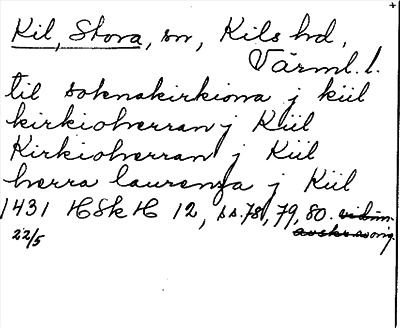 Kil, Stora, sn, Kils hd,
Värml. l.
til soknakirkiona j kiil
kirkioherran j Kiil
Kirkioherran j Kiil
herra laurensa j Kiil
1431 HSkH 12, ss. 78, 79, 80. vidim.
22/5 avskr. av orig.